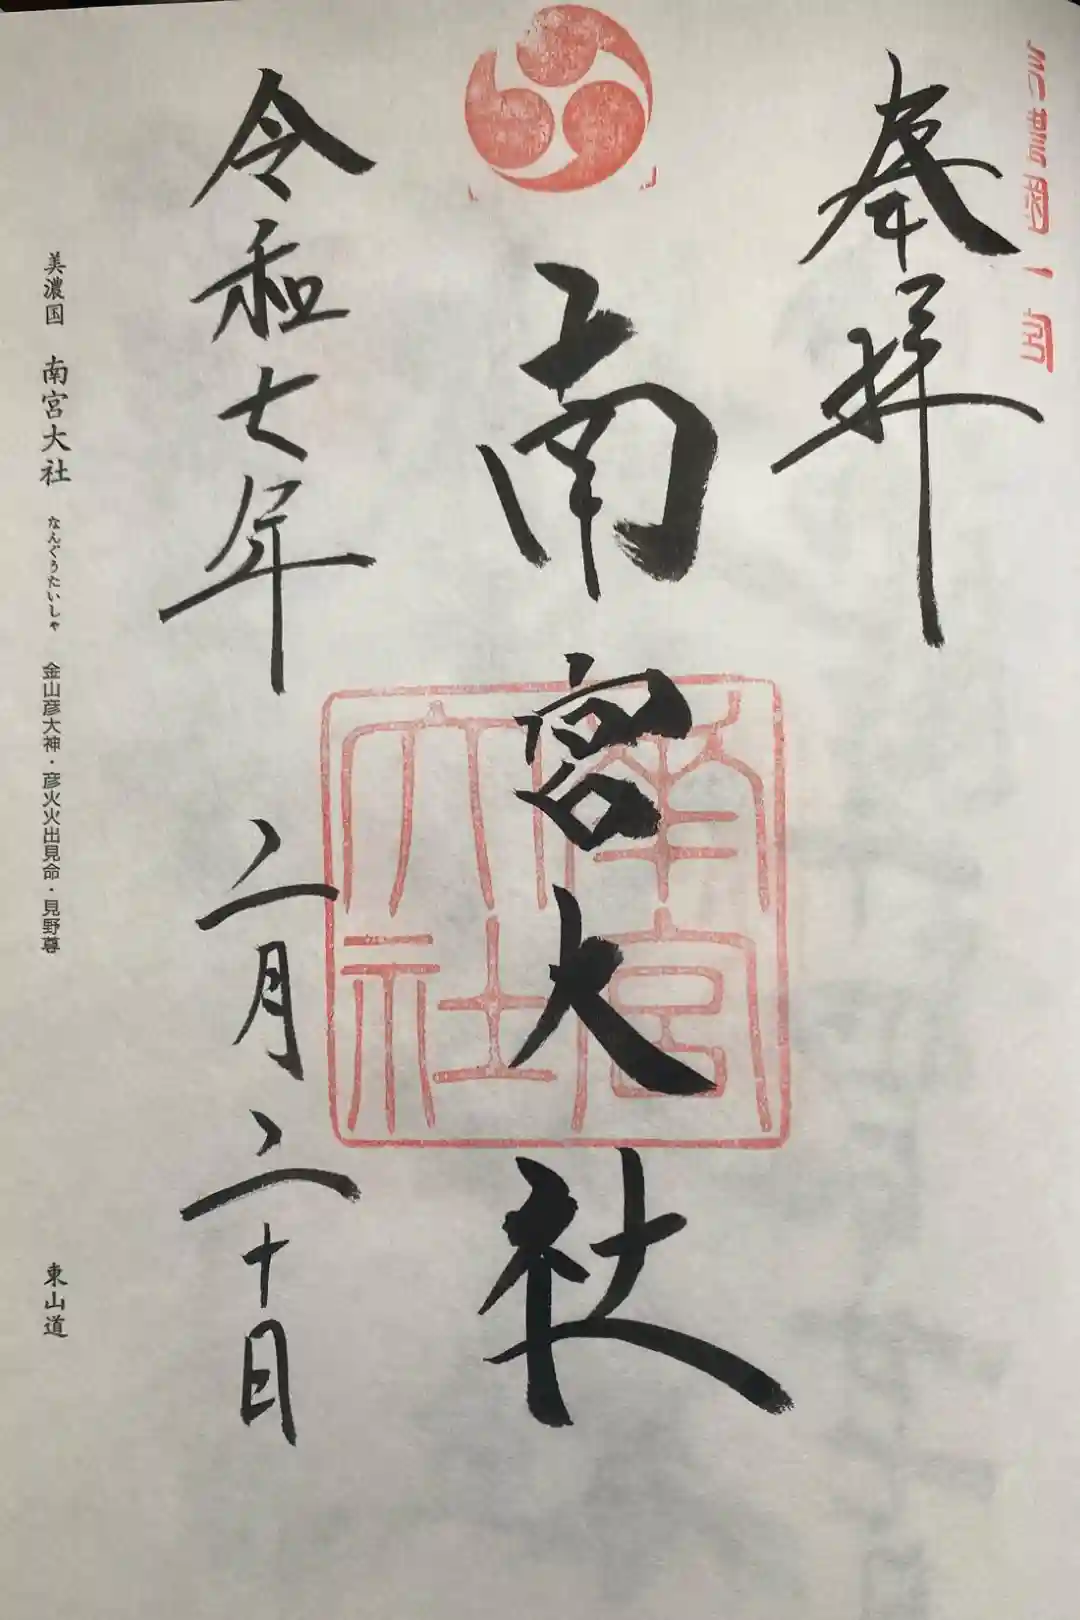 美濃国一宮
奉拝
南宮大社
南宮大社
令和七年 二月二十日
美濃国 南宮大社 なんぐうたいしゃ 金山彦大神・彦火火出見命・見野尊 東山道